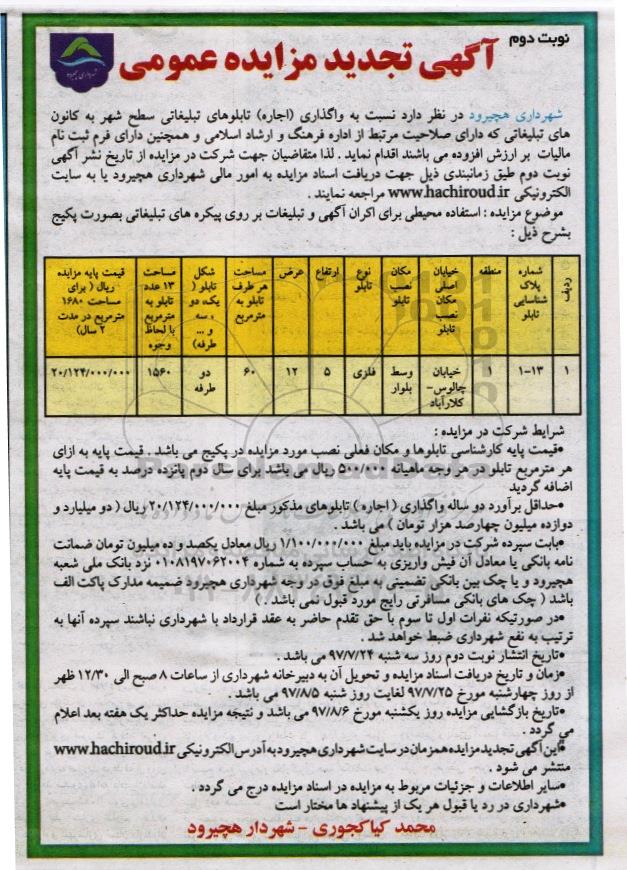 نوبت دوم
آگهی تجدید مزایده عمومی
شهرداری هچیرود
شهرداری هچیرود در نظر دارد نسبت به واگذاری (اجاره) تابلوهای تبلیغاتی سطح شهر به کانون
های تبلیغاتی که دارای صلاحیت مرتبط از اداره فرهنگ و ارشاد اسلامی و همچنین دارای فرم ثبت نام
مالیات بر ارزش افزوده می باشند اقدام نماید . لذا متقاضیان جهت شرکت در مزایده از تاریخ نشر آگهی
نوبت دوم طبق زمانبندی ذیل جهت دریافت اسناد مزایده به امور مالی شهرداری هچیرود یا به سایت
الکترونیکی www.hachiroud.ir مراجعه نمایند .
موضوع مزایده : استفاده محیطی برای اکران آگهی و تبلیغات بر روی پیکره های تبلیغاتی بصورت پکیج
بشرح ذیل :
ردیف
شماره پلاک شناسایی تابلو
منطقه
خیابان اصلی مکان نصب تابلو
مکان نصب تابلو
نوع تابلو
ارتفاع
عرض
مساحت هر طرف تابلو به مترمربع
شکل تابلو ( یک، دو ، سه و ... طرفه)
مساحت ۱۳ عدد تابلو به مترمربع با لحاظ وجوه
قیمت پایه مزایده ریال ( برای مساحت ۱۶۸۰ مترمربع در مدت ۲ سال)
۱
۱-۱۳
۱
خیابان چالوس- کلارآباد
وسط بلوار
فلزی
۵
۱۲
۶۰
دو طرفه
۱۵۶۰
۲۰/۱۲۴/۰۰۰/۰۰۰
شرایط شرکت در مزایده :
•قیمت پایه کارشناسی تابلوها و مکان فعلی نصب مورد مزایده در پکیج می باشد . قیمت پایه به ازای
هر مترمربع تابلو در هر وجه ماهیانه ۵۰۰/۰۰۰ ریال می باشد برای سال دوم پانزده درصد به قیمت پایه
اضافه گردید
•حداقل برآورد دو ساله واگذاری ( اجاره ) تابلوهای مذکور مبلغ ۲۰/۱۲۴/۰۰۰/۰۰۰ ریال ( دو میلیارد و
دوازده میلیون چهارصد هزار تومان ) می باشد .
•بابت سپرده شرکت در مزایده باید مبلغ ۱/۱۰۰/۰۰۰/۰۰۰ ریال معادل یکصد و ده میلیون تومان ضمانت
نامه بانکی یا معادل آن فیش واریزی به حساب سپرده به شماره ۰۱۰۸۱۹۷۰۶۲۰۰۴ نزد بانک ملی شعبه
هچیرود و یا چک بین بانکی تضمینی به مبلغ فوق در وجه شهرداری هچیرود ضمیمه مدارک پاکت الف
باشد ( چک های بانکی مسافرتی رایج مورد قبول نمی باشد . )
•در صورتیکه نفرات اول تا سوم با حق تقدم حاضر به عقد قرارداد با شهرداری نباشند سپرده آنها به
ترتیب به نفع شهرداری ضبط خواهد شد .
•تاریخ انتشار نوبت دوم روز سه شنبه ۹۷/۷/۲۴ می باشد .
•زمان و تاریخ دریافت اسناد مزایده و تحویل آن به دبیرخانه شهرداری از ساعات ۸ صبح الی ۱۲/۳۰ ظهر
از روز چهارشنبه مورخ ۹۷/۷/۲۵ لغایت روز شنبه ۹۷/۸/۵ می باشد .
•تاریخ بازگشایی مزایده روز یکشنبه مورخ ۹۷/۸/۶ می باشد و نتیجه مزایده حداکثر یک هفته بعد اعلام
می گردد .
•این آگهی تجدید مزایده همزمان در سایت شهرداری هچیرود به آدرس الکترونیکی www.hachiroud.ir
منتشر می شود .
•سایر اطلاعات و جزئیات مربوط به مزایده در اسناد مزایده درج می گردد .
•شهرداری در رد یا قبول هر یک از پیشنهاد ها مختار است
محمد کیاکجوری - شهردار هچیرود